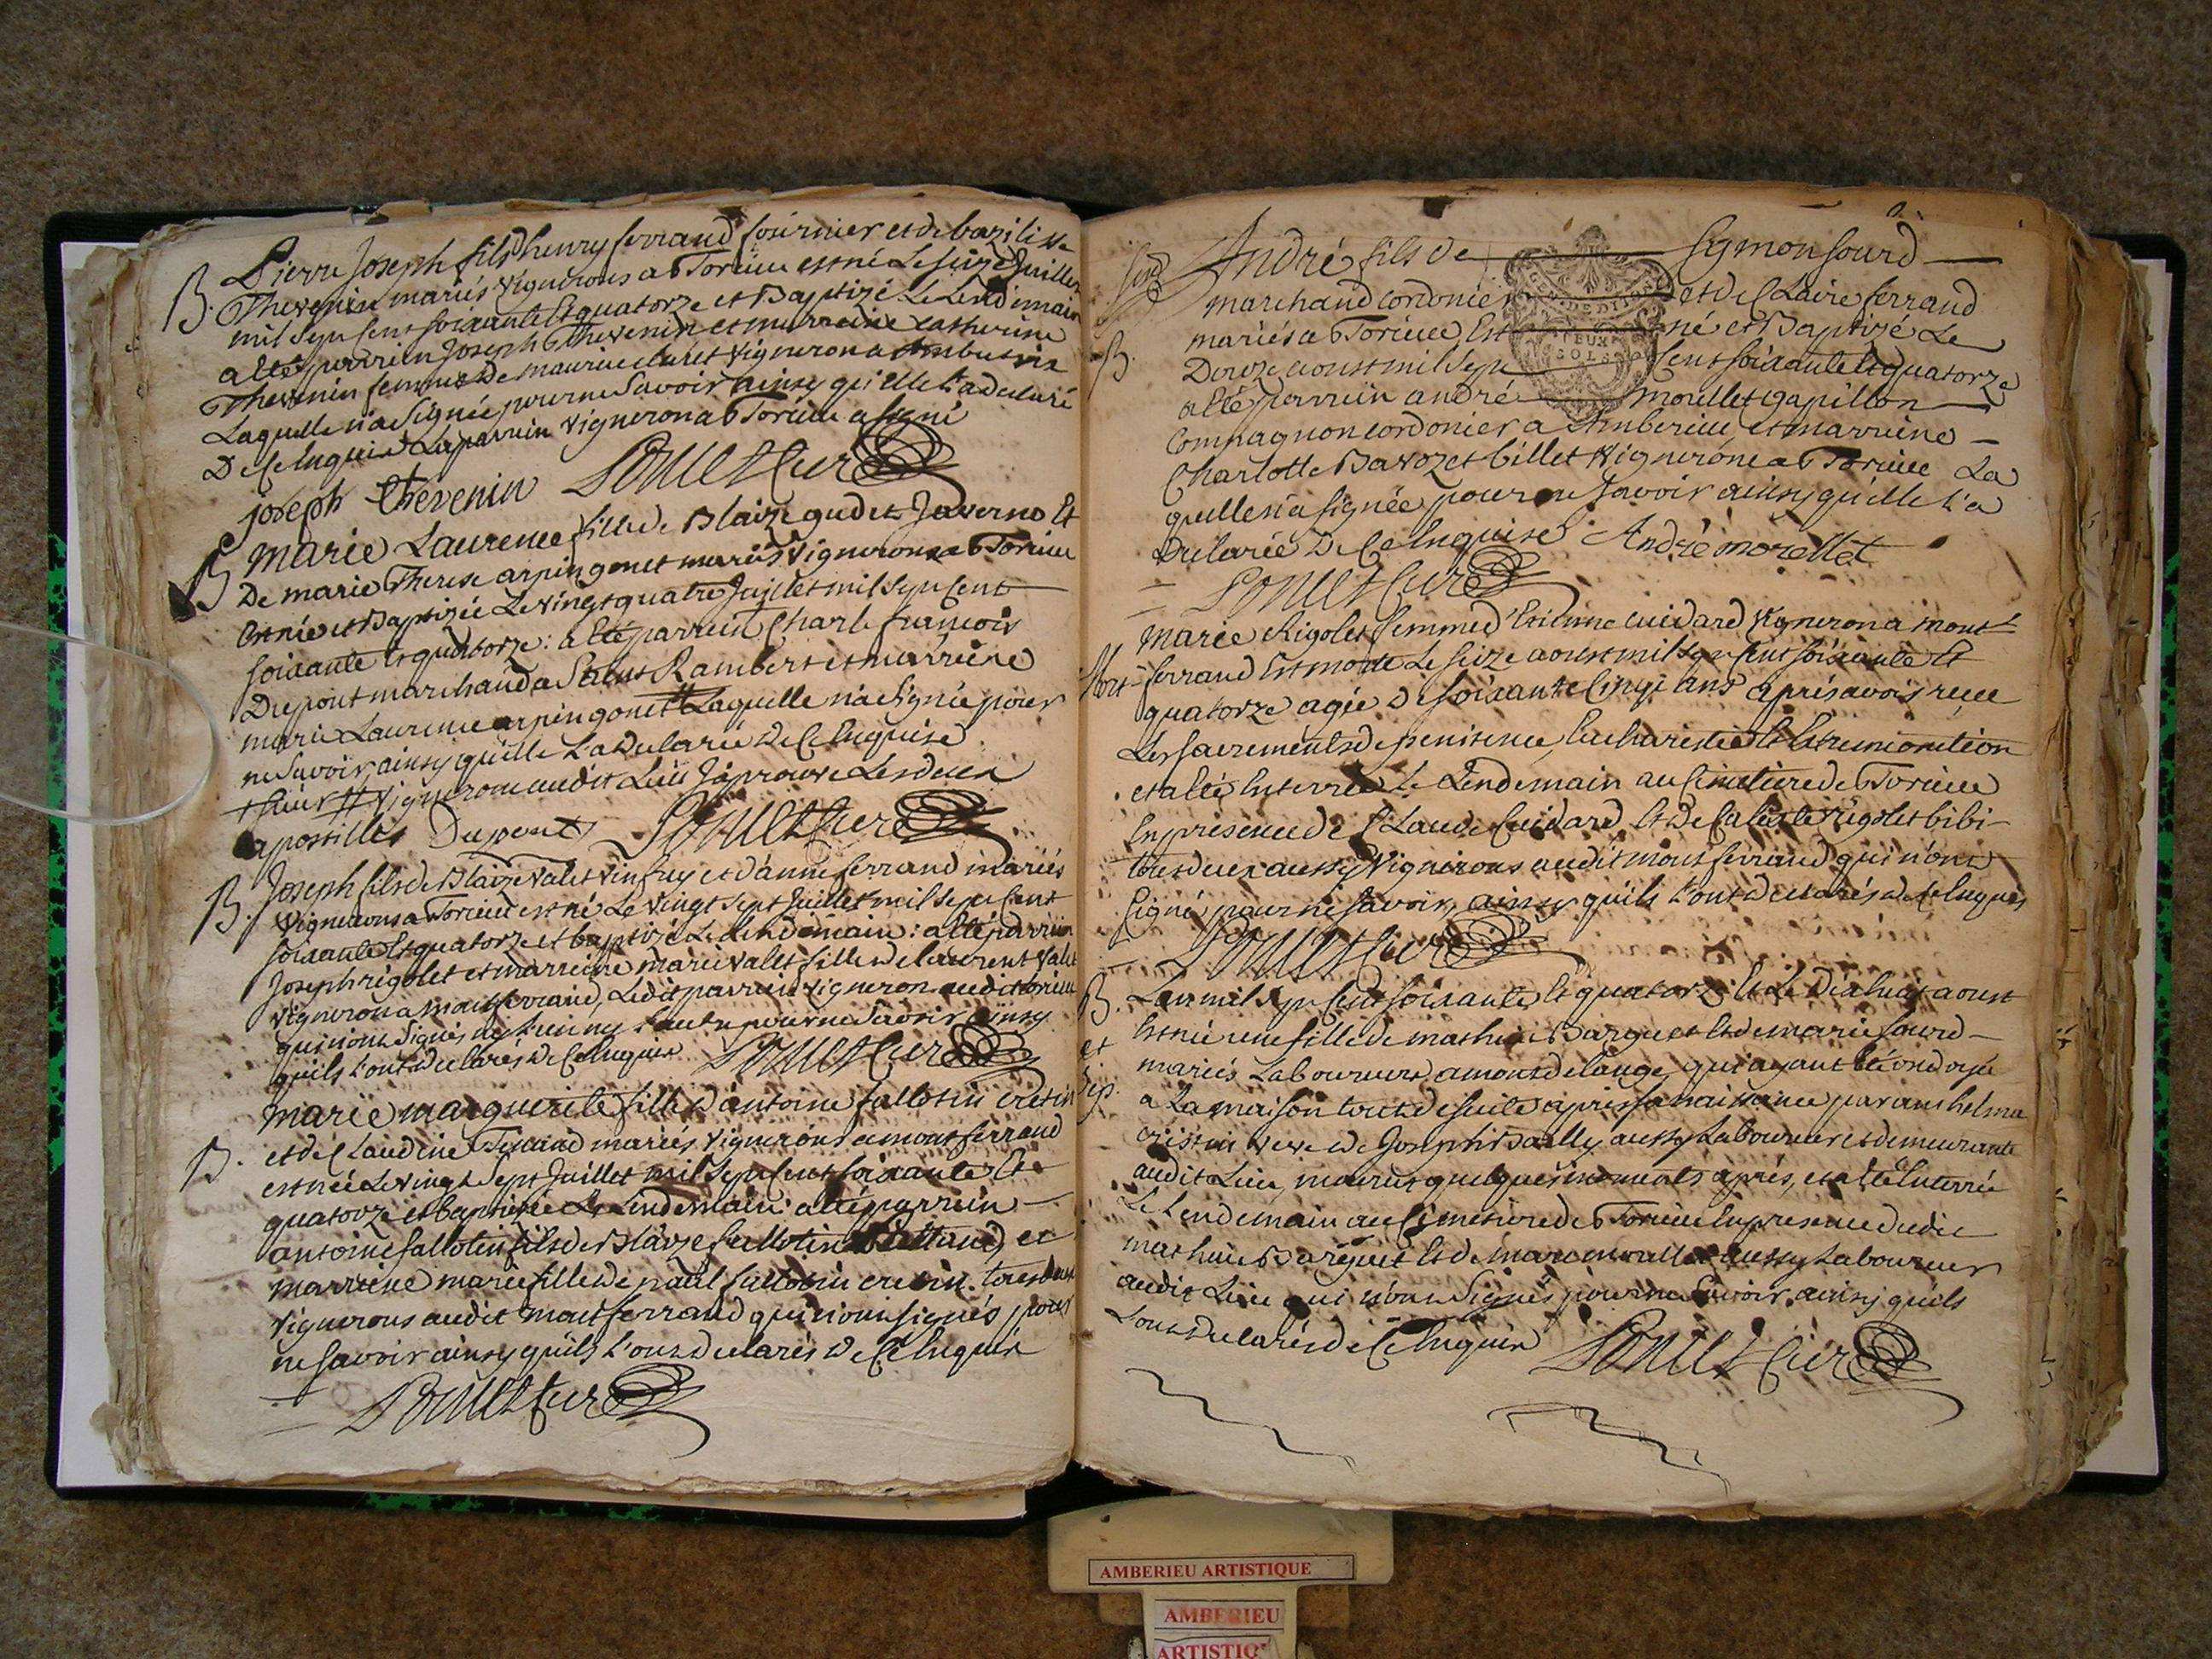 B. Pierre Joseph fils d'henry ferrand fournier et de bazilisse
Thevenin mariés vignerons a Torcieu est né Le seize Juillet
mil sept cent soixante et quatorze et Baptizé Le Lendemain
a été parrein Joseph Thevenin et marreine catherine
Thevenin femme de maurice vigneron a Ambutrix
Laquelle n'a signée pour ne savoir ainsy qu'elle L'a declaré
De ce enquise Le parrein vigneron a Torcieu a signé
joseph thevenin Poncet Curé
B Marie Laurence fille de Blaize gudet Javerno Et
De marie Therese arpin gonet mariés vignerons a Torcieu
Est née et Baptizée Le vingt quatre Juillet mil sept cent
soixante et quatorze : a été parrein Charle francois
Dupont marchand a Saint Rambert et marreine
marie Laurence arpin gonet Laquelle n'a signée pour
ne savoir ainsy qu'elle L'a declarée de ce enquise
vignerone audit Lieu J'aprouve Les deux
apostilles Dupont Poncet Curé
B. Joseph fils de Blaize valet vinfrey et d'anne ferrand mariés
vignerons a Torcieu est né Le vingt sept Juillet mil sept cent
soixante et quatorze et baptizé Le Lendemain : a été parrein
Joseph rigolet et marreine marie valet fille de laurent valet
vigneron a montferrand, Ledit parrein vigneron audit torcieu
qui n'ont signés ny l'un ny l'autre pour ne savoir ainsy
qu'ils L'ont declarés de ce enquis Poncet Curé
B. Marie marguerite fille d'antoine fallotin cretin
et de Claudine Tenand mariés vignerons a montferrand
est née Le vingt sept Juillet mil sept cent soixante et
quatorze et baptizée Le Lendemain : a été parrein
antoine fallotin fils de Blaize fallotin et
marreine marie fille de paul fallotin cretin tous deux
vignerons audit montferrand qui n'ont signés pour
ne savoir ainsy qu'ils L'ont declarés de ce enquis
Poncet Curé
André fils de Symon sourd
marchand cordonier et de Claire ferrand
mariés a Torcieu Est né et Baptizé Le
B. Douze aoust mil sept cent soixante et quatorze
a été parrein andré morellet papillon
Compagnon cordonier a Amberieu et marreine
Charlotte Bavozet billet vignerone a Torcieu La
quelle n'a signée pour ne savoir ainsy qu'elle L'a
Declarée de ce enquise André morellet
Poncet Curé
Marie Rigolet femme d'Etienne cuidard vigneron a mont
Mort ferrand Est morte Le seize aoust mil sept cent soixante et
quatorze agée de soixante cinq ans après avoir recue
Les sacrements de penitence, Eucharistie et Extremionction
et a été Enterrée Le Lendemain au Cimetiere de Torcieu
En presence de Claude Cuidard et de Calixte rigolet bibi
tous deux aussy vignerons audit montferrand qui n'ont
signés pour ne savoir, ainsy qu'ils L'ont declarés de ce enquis
Poncet Curé
B. L'an mil sept cent soixante et quatorze et Le dixhuit aoust
et Est née une fille de mathieu Barquet et de marie sourd
Sep. mariés Laboureurs a mont de lange, qui ayant été ondoyée
a La maison tout de suite après sa naissance par anthelma
cristin veve de Joseph Bailly aussy Laboureur et demeurante
audit Lieu, mourut quelques moments après, et a été Enterrée
Le Lendemain au Cimetiere de Torcieu En presence dudit
mathieu Barquet et de marc morallet aussy Laboureur
audit Lieu qui n'ont signés pour ne savoir, ainsy qu'ils
L'ont declarés de ce enquis Poncet Curé
GEN DE DIJON
DEUX
SOLS
AMBERIEU ARTISTIQUE
AMBERIEU
ARTISTIQ